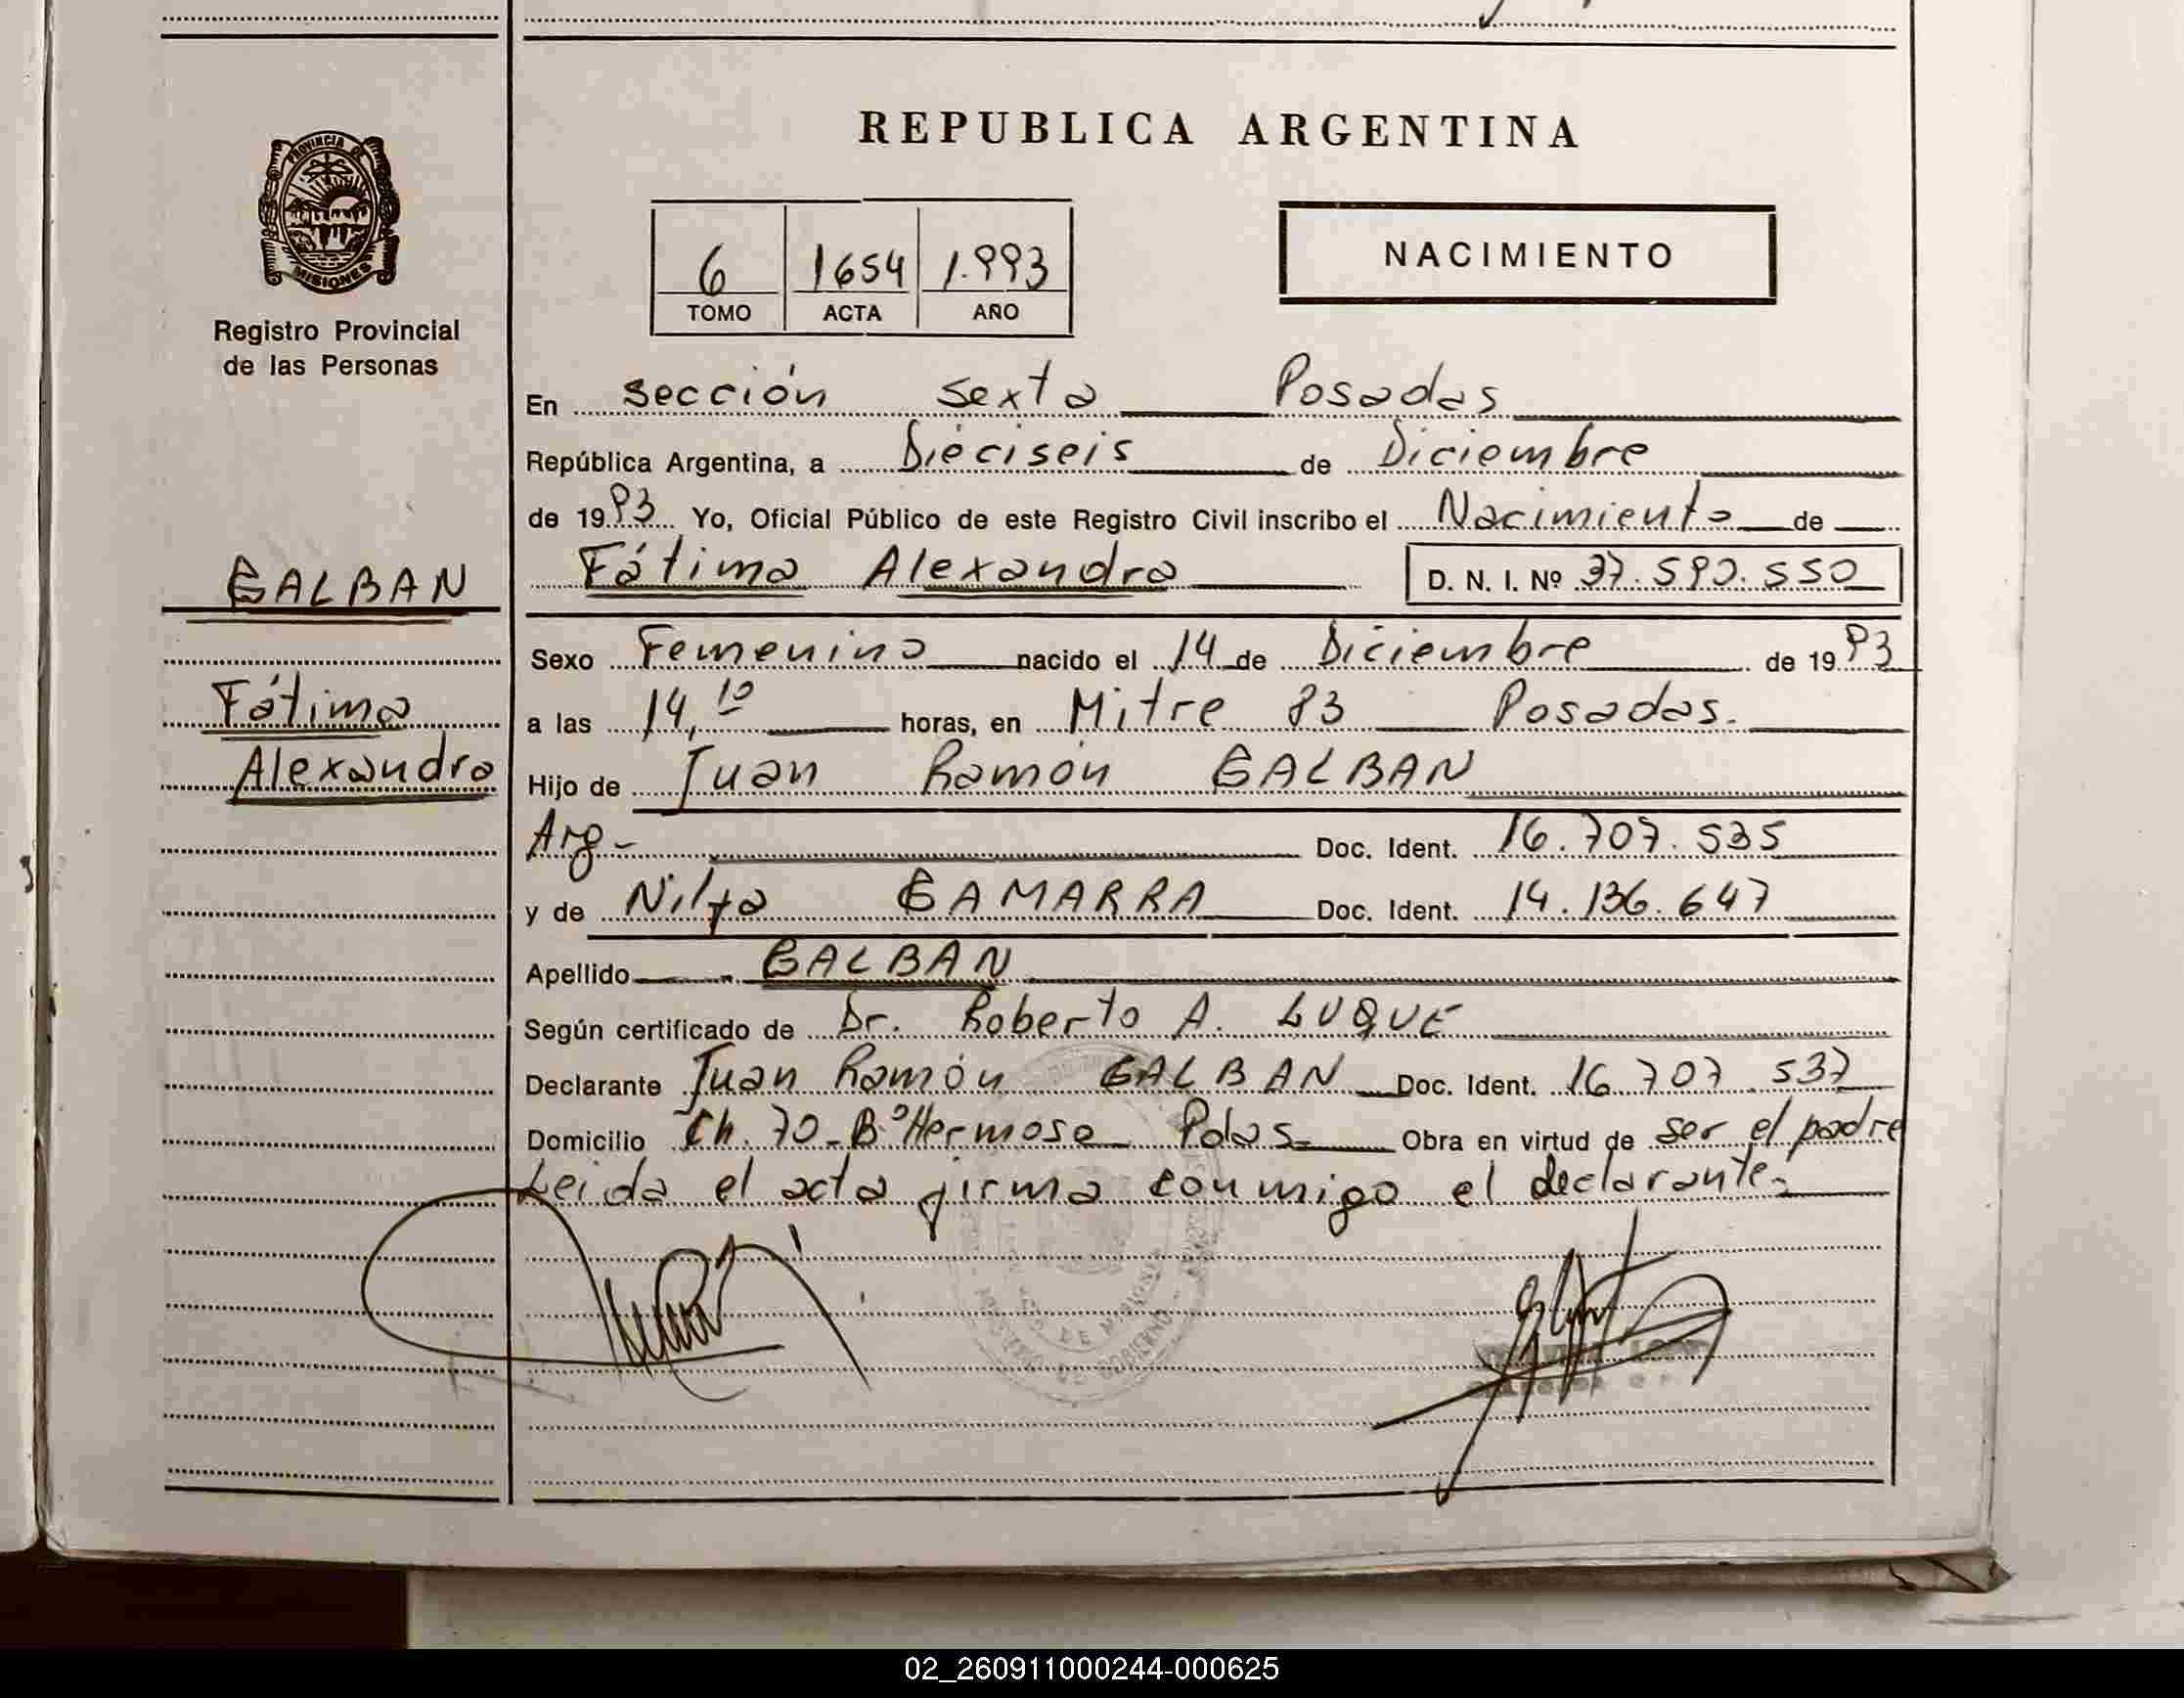 REPUBLICA ARGENTINA
PROVINCIA DE
MISIONES
Registro Provincial
de las Personas
6 1654 1.993
TOMO ACTA AÑO
NACIMIENTO
En sección sexta Posadas
República Argentina, a Dieciseis de Diciembre
de 1993 Yo, Oficial Público de este Registro Civil inscribo el Nacimiento de
GALBAN
Fátima Alexandra D. N. I. Nº 37.590.550
Sexo Femenino nacido el 14 de Diciembre de 1993
Fátima
a las 14,10 horas, en Mitre 93 Posadas.
Alexandra
Hijo de Juan Ramón GALBAN
Arg- Doc. Ident. 16.707.535
y de GAMARRA Doc. Ident. 14.136.647
Apellido GALBAN
Según certificado de Dr. Roberto A. LUQUE
Declarante Juan Ramón GALBAN Doc. Ident. 16.707.537
Domicilio Ch. 70-Bº Hermoso Pdas- Obra en virtud de ser el padre
Leida el acta firma conmigo el declarante-
MINISTERIO DE GOBIERNO
02_260911000244-000625